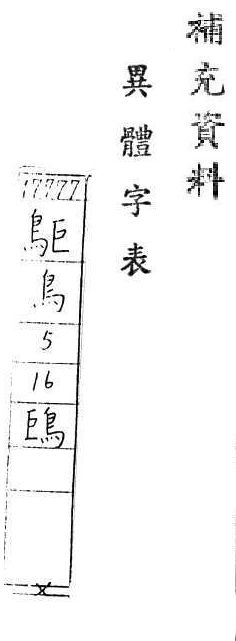 補充資料
異體字表
17777
鳥
5
16